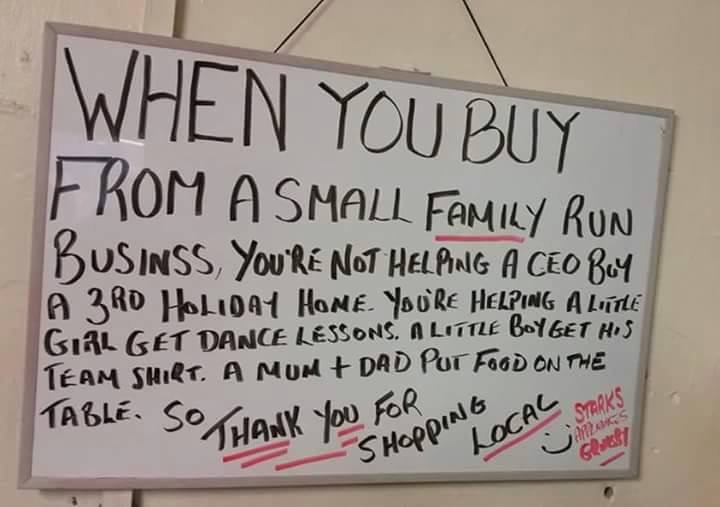 WHEN YOU BUY
FROM A SMALL FAMILY RUN
BUSINSS, YOU'RE NOT HELPING A CEO BUY
A 3RD HOLIDAY HOME. YOU'RE HELPING A LITTLE
GIRL GET DANCE LESSONS. A LITTLE BOY GET HIS
TEAM SHIRT. A MUM + DAD PUT FOOD ON THE
TABLE. SO THANK YOU FOR
SHOPPING LOCAL :)
STARKS
GRIMSBY